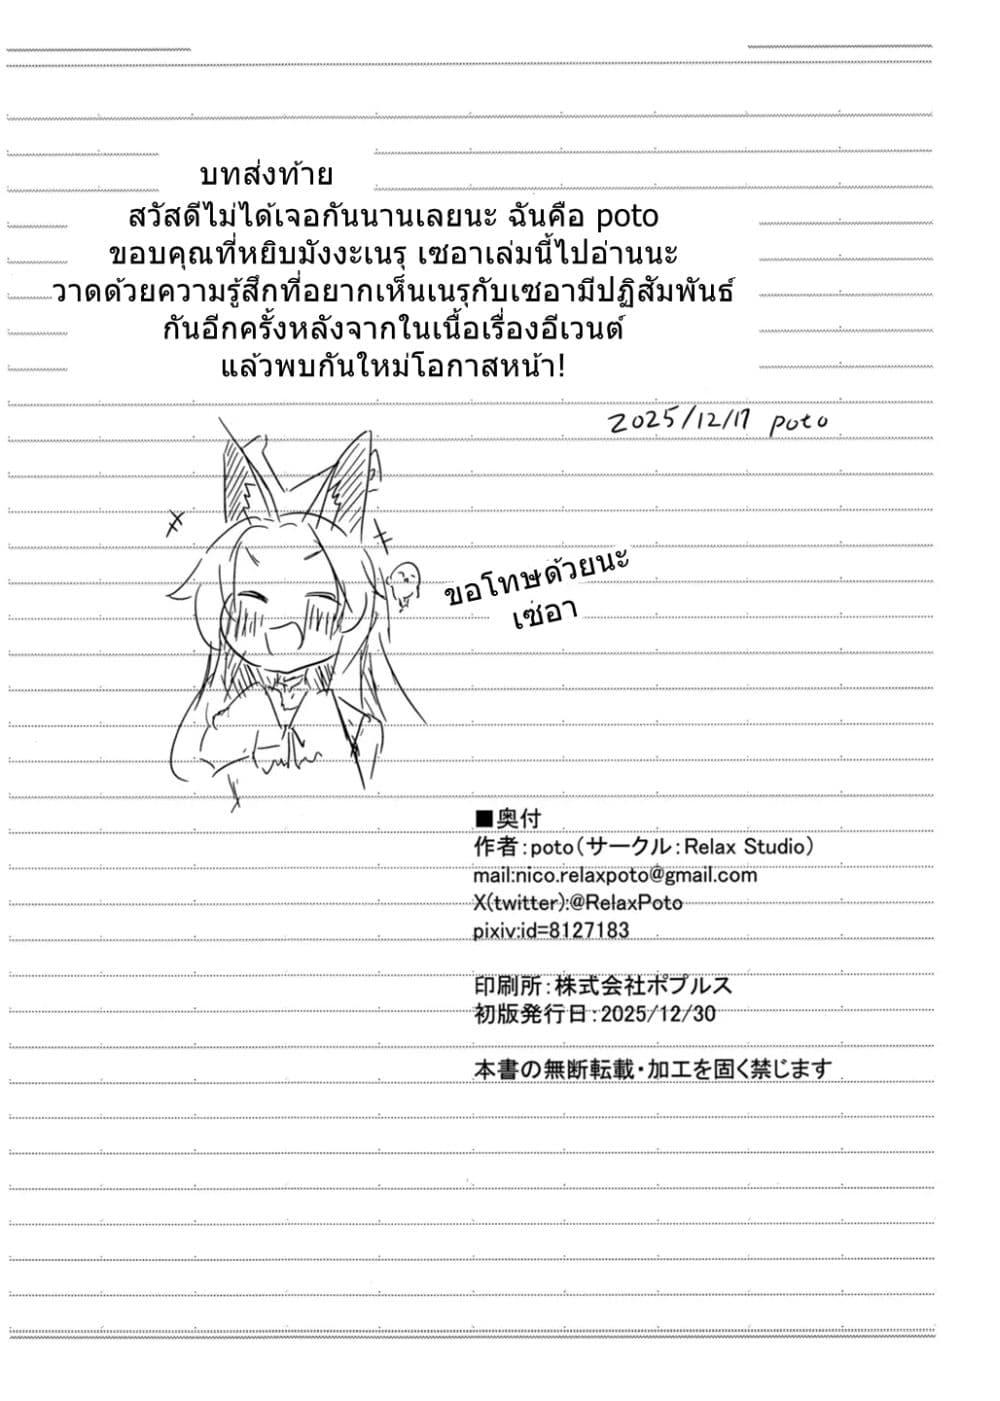 บทส่งท้าย
สวัสดีไม่ได้เจอกันนานเลยนะ ฉันคือ poto
ขอบคุณที่หยิบมังงะเนรุ เซอาเล่มนี้ไปอ่านนะ
วาดด้วยความรู้สึกที่อยากเห็นเนรุกับเซอามีปฏิสัมพันธ์
กันอีกครั้งหลังจากในเนื้อเรื่องอีเวนต์
แล้วพบกันใหม่โอกาสหน้า!
2025/12/17 poto
ขอโทษด้วยนะ
เซอา
■奥付
作者：poto（サークル：Relax Studio）
mail:nico.relaxpoto@gmail.com
X(twitter):@RelaxPoto
pixiv:id=8127183
印刷所：株式会社ポプルス
初版発行日：2025/12/30
本書の無断転載・加工を固く禁じます